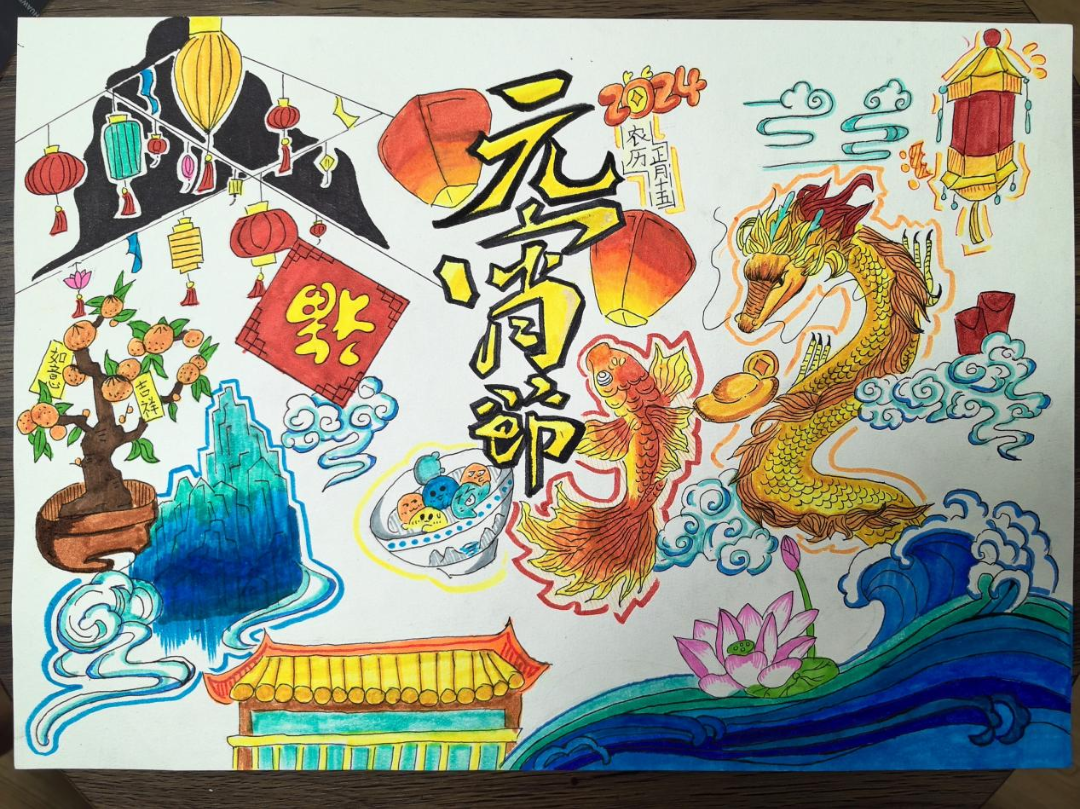 元宵節
2024
农历
正月十五
福
吉祥